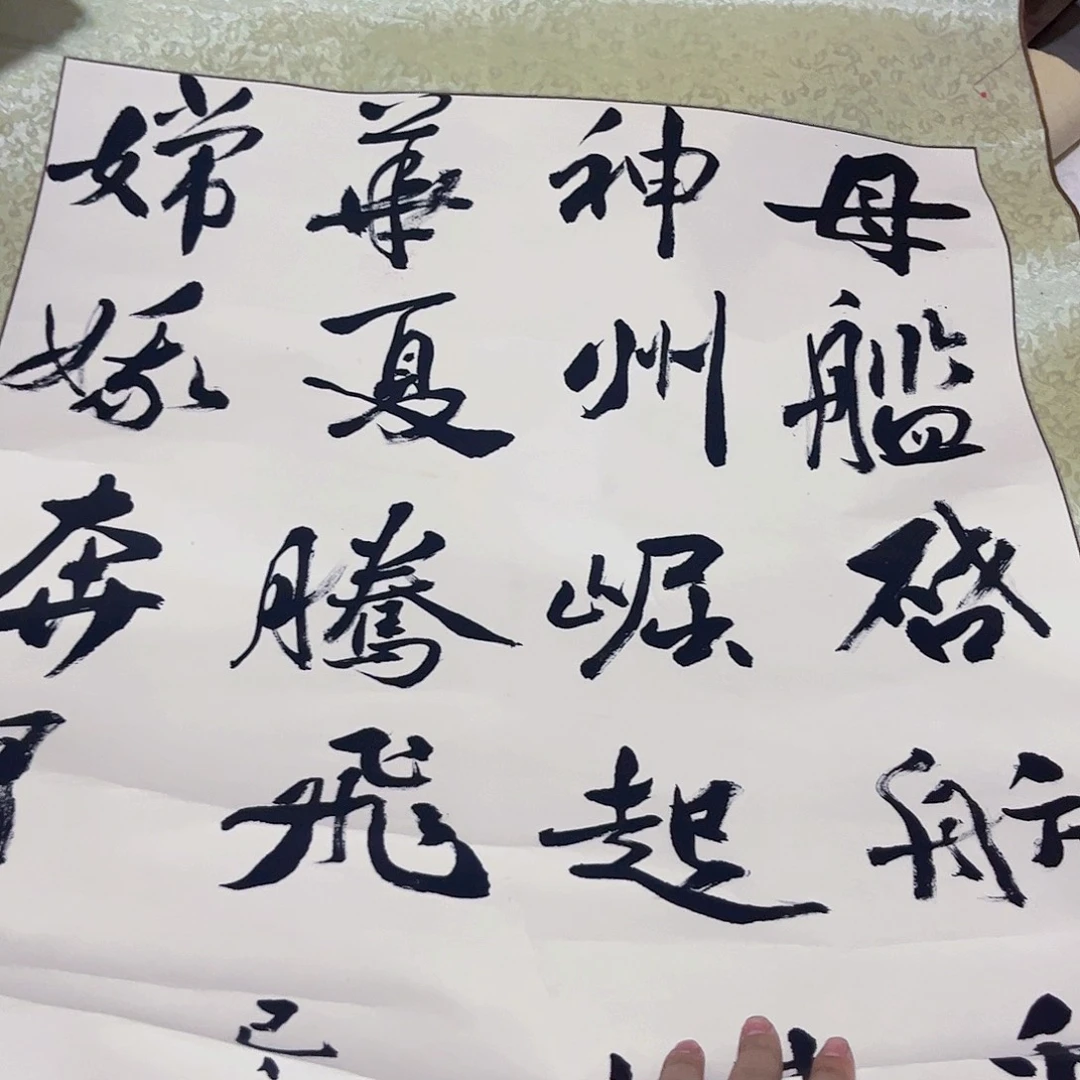 母艦啓航
神州崛起
華夏騰飛
嫦娥奔